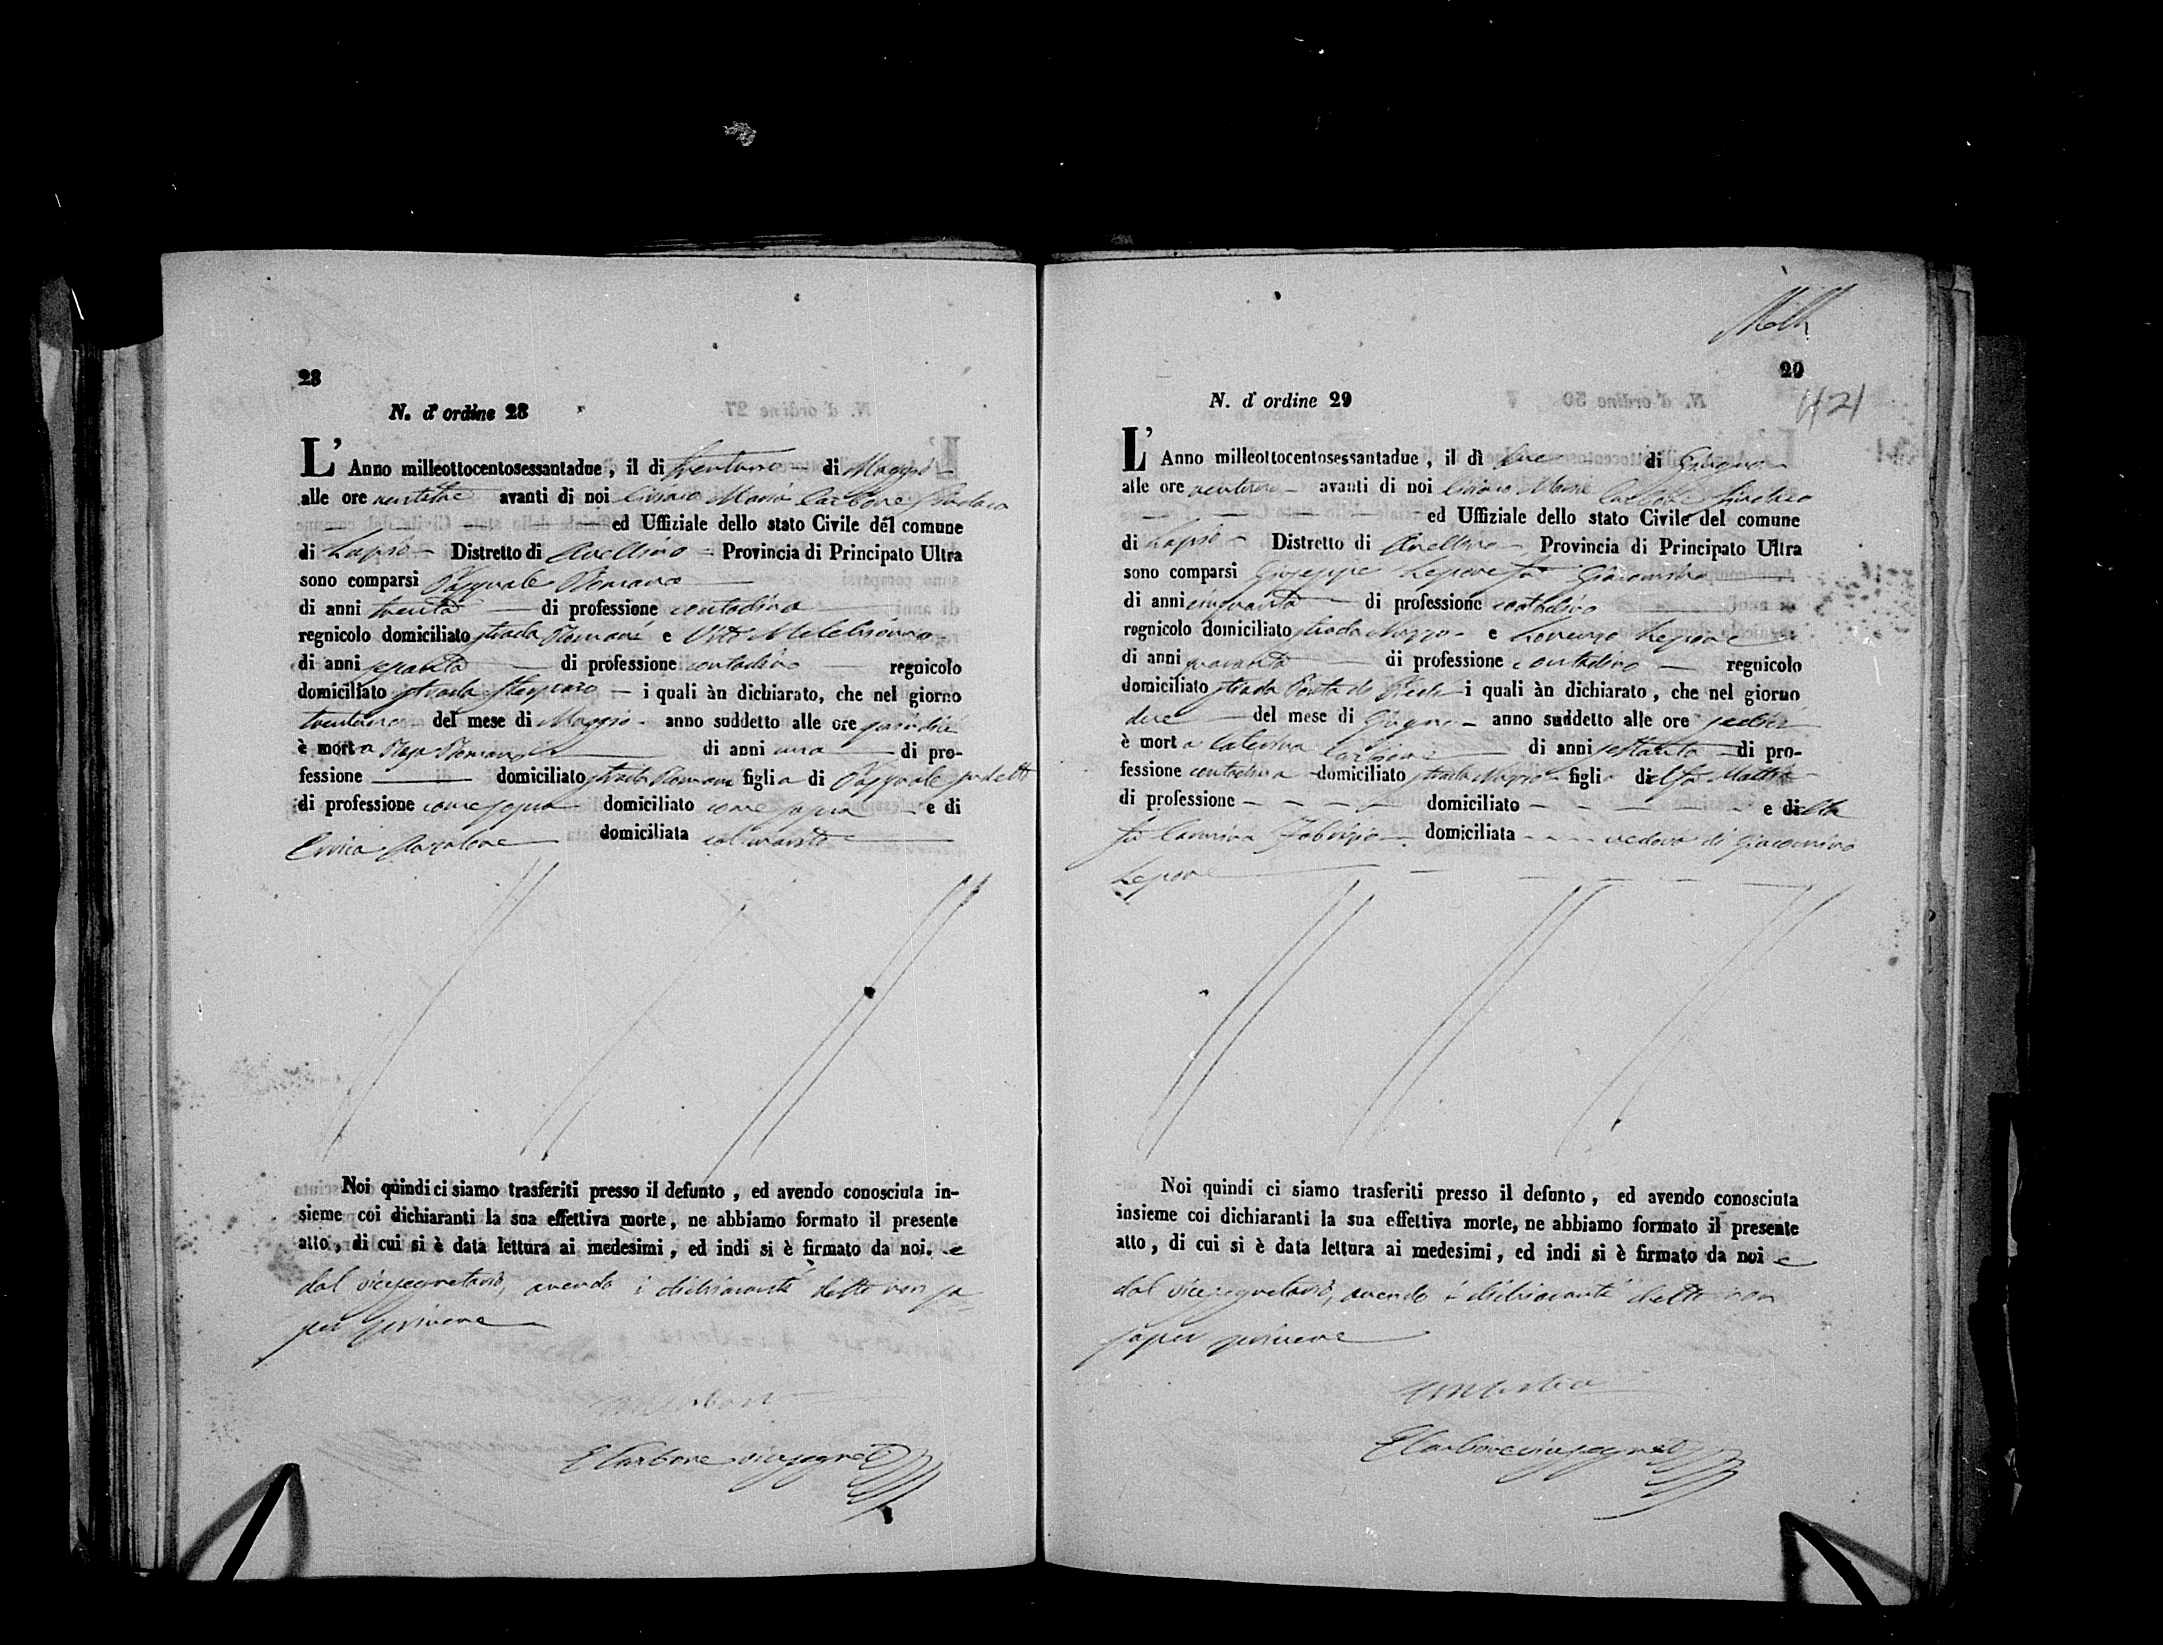 28
N. d'ordine 28
L'Anno milleottocentosessantadue, il di trentuno di Maggio
alle ore ventitre avanti di noi Maria Carbone Sindaco
ed Uffiziale dello stato Civile del comune
di Lapio Distretto di Avellino Provincia di Principato Ultra
sono comparsi Pasquale Romano
di anni trenta di professione contadino
regnicolo domiciliato strada Romani e Vito Melchionno
di anni sessanta di professione contadino regnicolo
domiciliato strada i quali àn dichiarato, che nel giorno
trentuno del mese di Maggio anno suddetto alle ore quindici
è morta Romano di anni uno di pro-
fessione domiciliato strada Romani figlia di Pasquale sudetto
di professione come sopra domiciliato come sopra e di
domiciliata col marito
Noi quindi ci siamo trasferiti presso il defunto, ed avendo conosciuta in-
sieme coi dichiaranti la sua effettiva morte, ne abbiamo formato il presente
atto, di cui si è data lettura ai medesimi, ed indi si è firmato da noi. e
dal vicesegretario, avendo i dichiaranti detto non sa-
per scrivere
Carbone vicesegret
29
N. d'ordine 29
L'Anno milleottocentosessantadue, il dì due di Giugno
alle ore avanti di noi Maria Carbone Sindaco
ed Uffiziale dello stato Civile del comune
di Lapio Distretto di Avellino Provincia di Principato Ultra
sono comparsi Giuseppe Lepore fu Giacomino
di anni cinquanta di professione contadino
regnicolo domiciliato strada e Lorenzo Lepore
di anni quaranta di professione contadino regnicolo
domiciliato strada i quali àn dichiarato, che nel giorno
due del mese di Giugno anno suddetto alle ore sedici
è morta Caterina Carbone di anni settanta di pro-
fessione contadina domiciliato strada figlia del fu Mattia
di professione domiciliato e della
fu Carmina Fabrizio domiciliata vedova di Giacomino
Lepore
Noi quindi ci siamo trasferiti presso il defunto, ed avendo conosciuta
insieme coi dichiaranti la sua effettiva morte, ne abbiamo formato il presente
atto, di cui si è data lettura ai medesimi, ed indi si è firmato da noi e
dal vicesegretario, avendo i dichiaranti detto non
saper scrivere
Carbone vicesegret